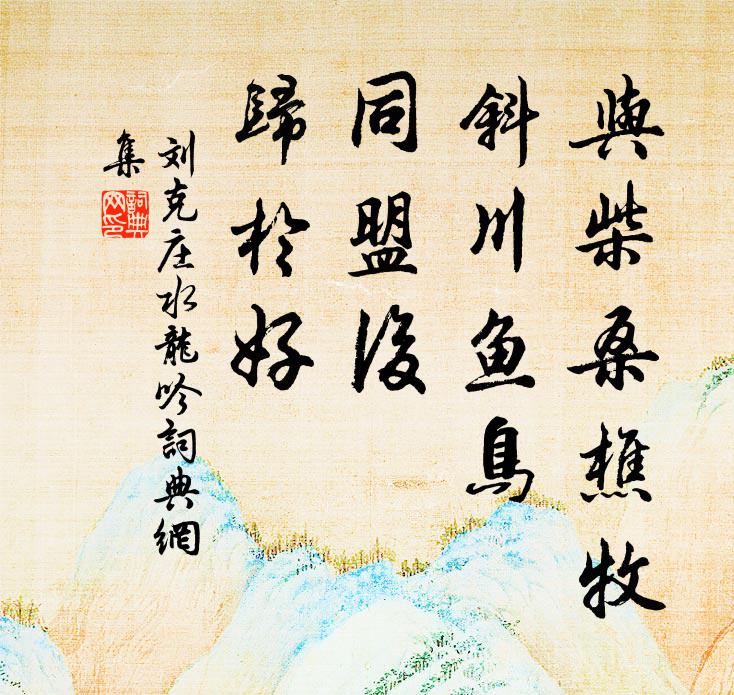 與柴桑樵牧
斜川鱼鳥
同盟後
歸於好
刘克庄水龍吟詞典網
集
詞典網印